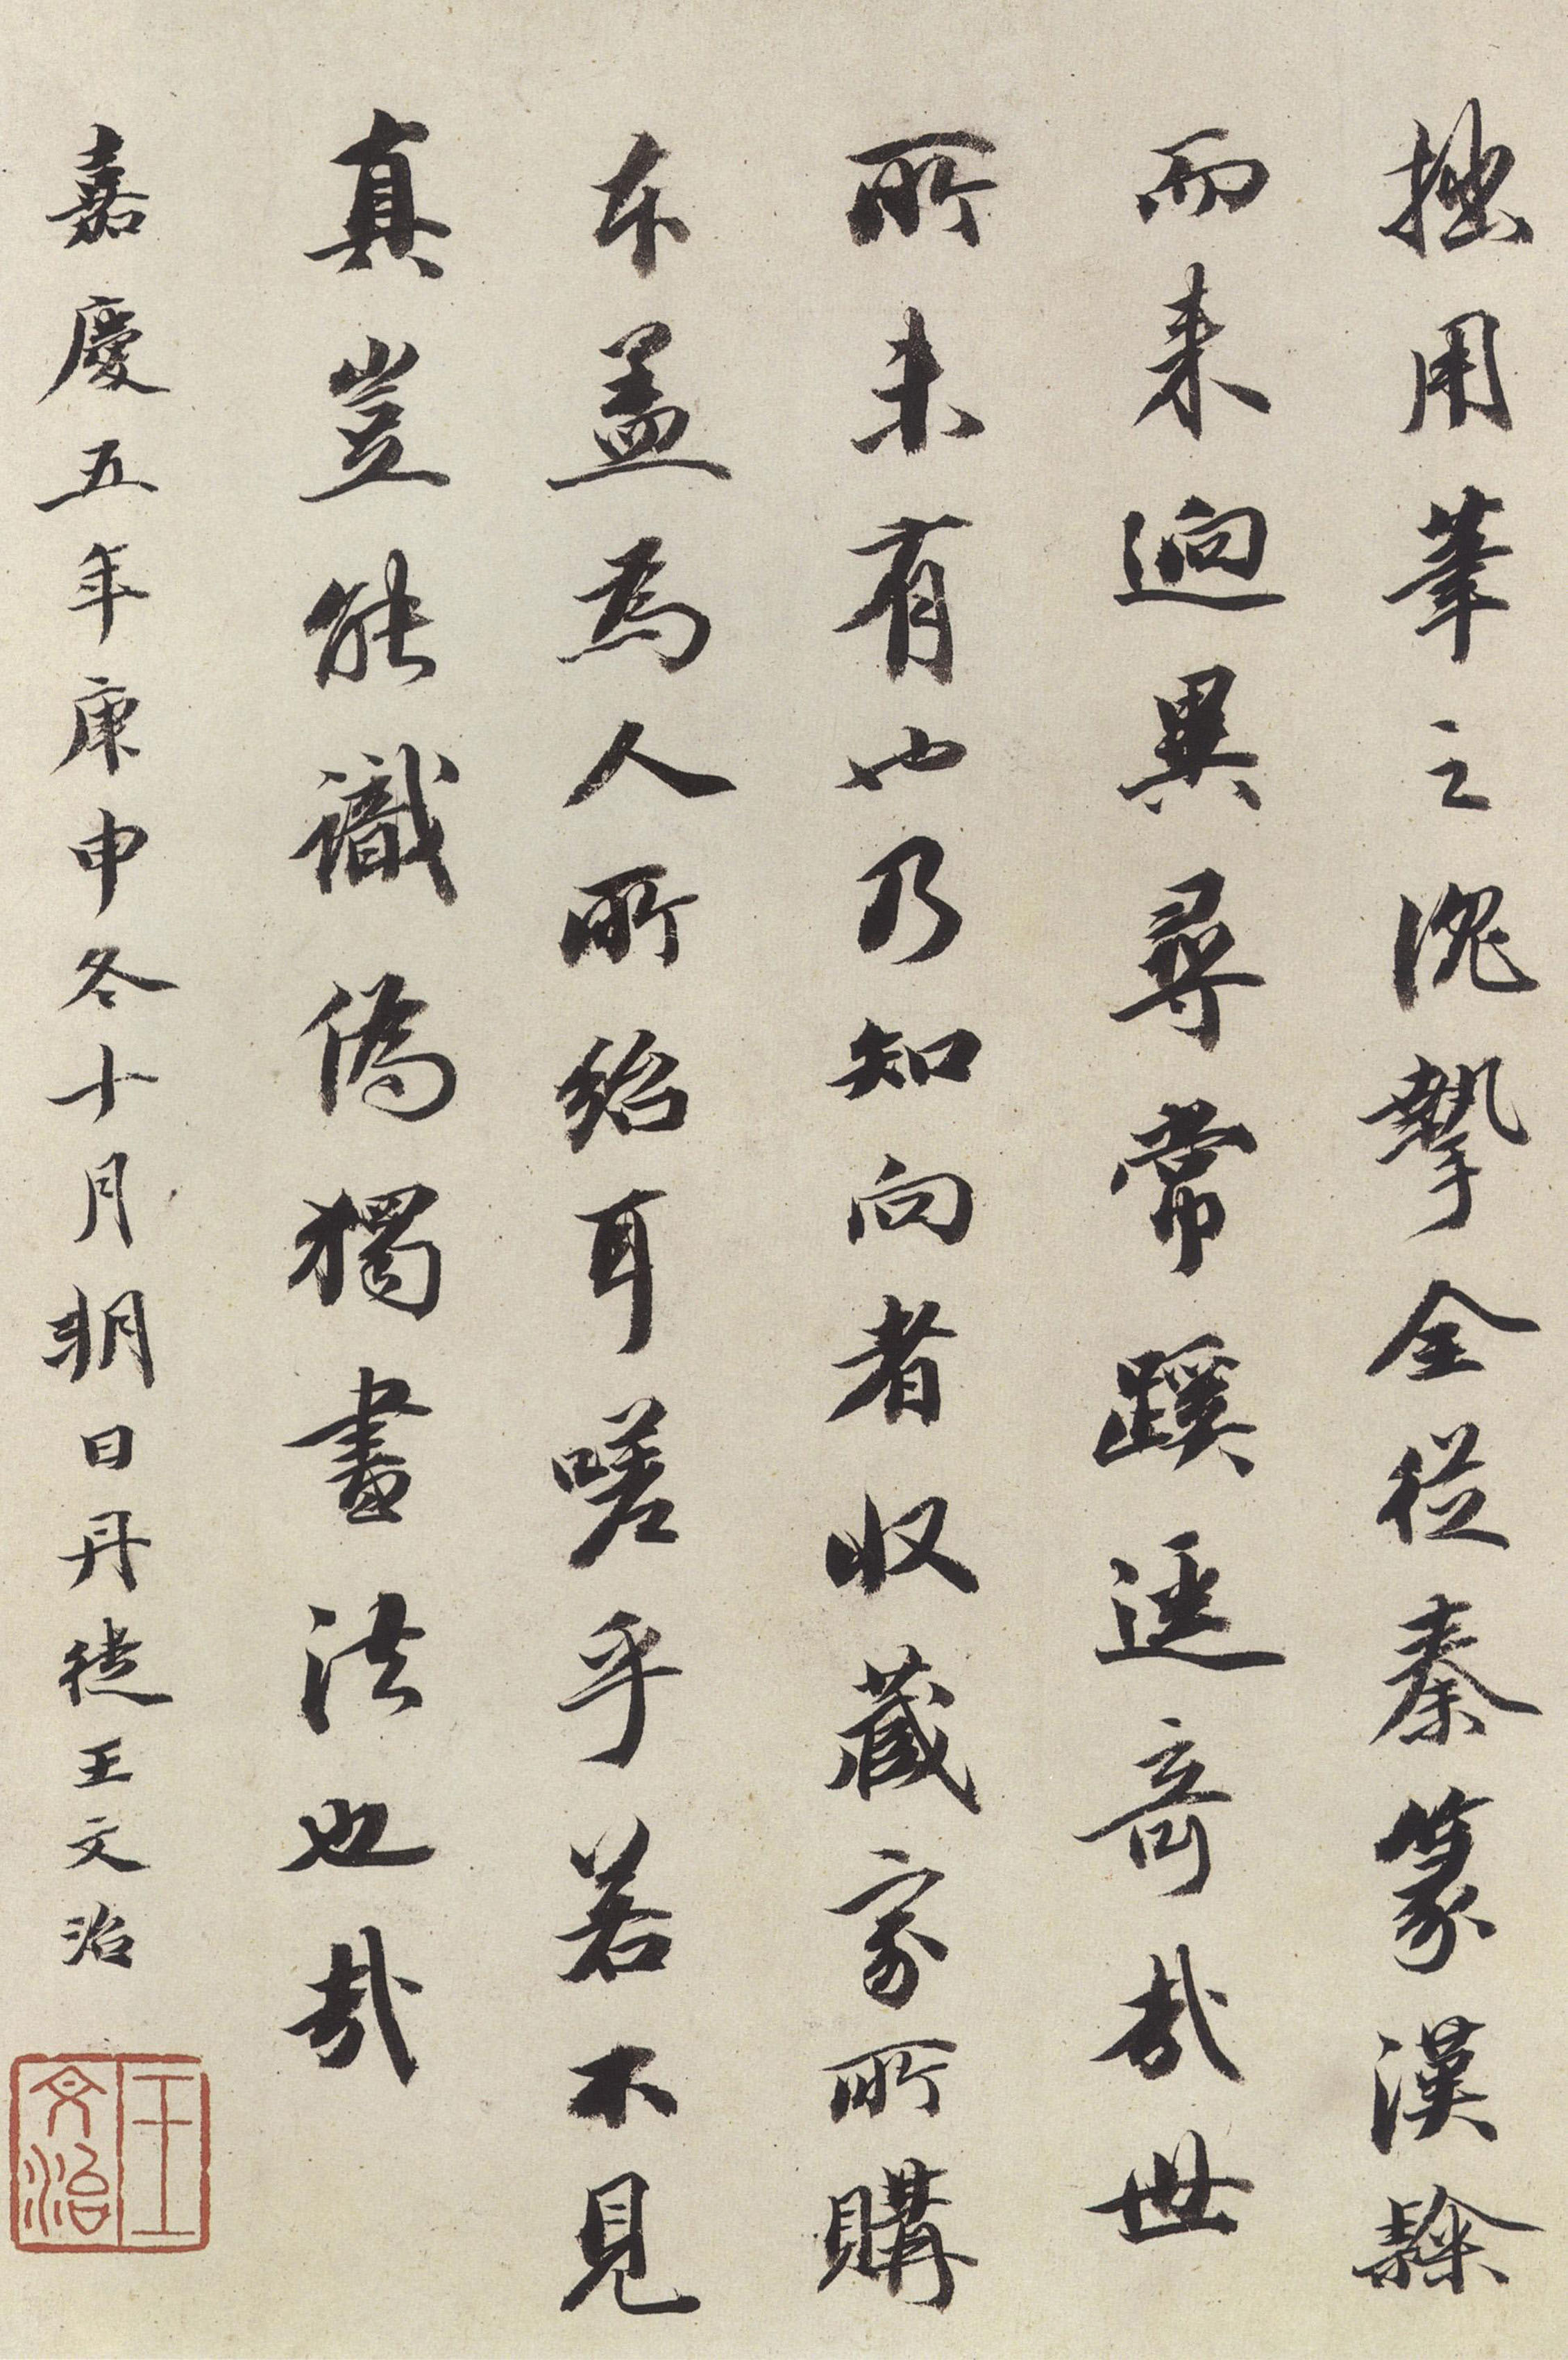 拙用筆之沈摯全從秦篆漢隸
而来迥異尋常蹊逕奇哉世
所未有也乃知向者收藏家所購
本盖為人所紿耳嗟乎若不見
真豈能識偽獨畫法也哉
嘉慶五年庚申冬十月朔日丹徒王文治
王文治